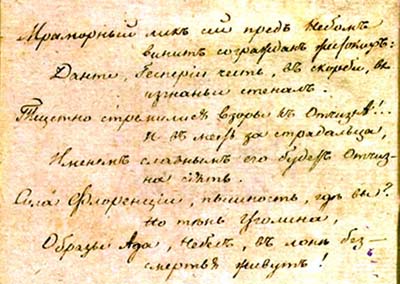 Мраморный ликъ сій предъ Небомъ
винитъ согражданъ жестокихъ:
Данте, Гесперіи честь, въ скорби, въ
изгнаньи стеналъ.
Тщетно стремилися взоры къ Отчизнѣ!..
И въ месть за страдальца,
Именемъ славнымъ его будетъ Отчиз-
на сіять.
Сила Флоренціи, пышность, гдѣ вы?
Но тѣнь Уголина,
Образы Ада, Небесъ, въ лонѣ без-
смертья живутъ!